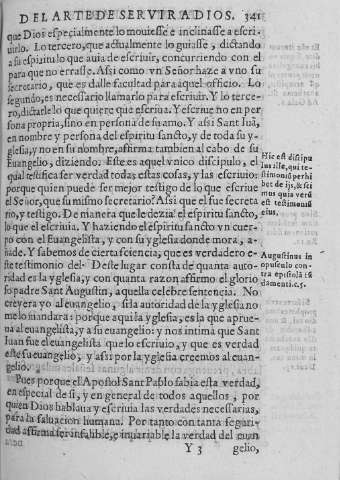 DEL ARTE DE SERVIR A DIOS. 341
que Dios especialmente lo mouiesse e inclinasse a escri-
uirlo. Lo tercero, que actualmente lo guiasse, dictando
a su espiritu lo que auia de escreuir, concurriendo con el
para que no errasse. Assi como vn Señor haze a vno su
secretario, que es dalle facultad para aquel officio. Lo
segundo, es necessario llamarlo para escriuir. Y lo terce-
ro, dictarle lo que quiere que escriua. Y escriue no en per
sona propria, sino en persona de su amo. Y assi Sant Iuã,
en nombre y persona del espiritu sancto, y de toda su y-
glesia, y no en su nombre, affirma tambien al cabo de su
Euangelio, diziendo. Este es aquel vnico discipulo, el
qual testifica ser verdad todas estas cosas, y las escriuio:
porque quien puede ser mejor testigo de lo que escriue
el Señor, que su mismo secretario? Assi que el fue secreta
rio, y testigo. De manera que le dezia el espiritu sancto,
lo que el escriuia. Y haziendo el espiritu sancto vn cuer-
po con el Euangelista, y con su yglesia donde mora, a-
ñade. Y sabemos de cierta sciencia, que es verdadero e-
ste testimonio del. Deste lugar consta de quanta auto-
ridad es la yglesia, y con quanta razon affirmo el glorio
so padre Sant Augustin, aquella celebre sentencia. No
creyera yo al euangelio, si la autoridad de la yglesia no
me lo mandara: porque aqui la yglesia, es la que aprue-
ua al euangelista, y a su euangelio: y nos intima que Sant
Iuan fue el euangelista que lo escriuio, y que es verdad
este su euangelio, y assi por la yglesia creemos al euan-
gelio.
Pues porque el Apostol Sant Pablo sabia esta verdad,
en especial de si, y en general de todos aquellos, por
quien Dios hablaua y escriuia las verdades necessarias,
para la saluacion humana. Por tanto con tanta seguri-
dad affirma ser infalible, e inuariable la verdad del euan
Y 3 gelio,
Hic est discipu
lus ille, qui te-
stimoniũ perhi
bet de ijs, & sci
mus quia verũ
est testimoniũ
eius.
Augustinus in
opusculo con-
tra epistolã fũ
damenti. c. 5.